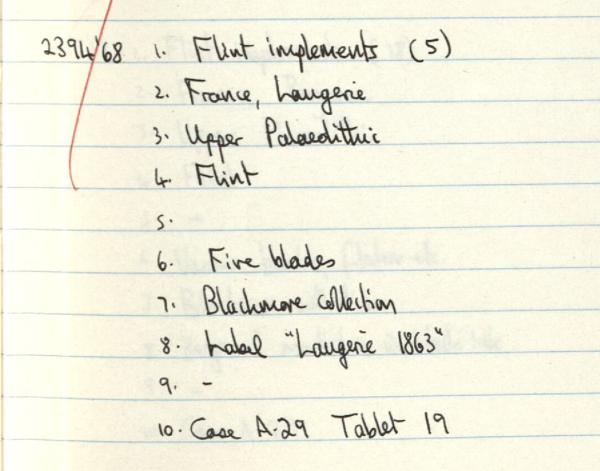 2394'68 1. Flint implements (5)
2. France, Laugerie
3. Upper Palaeolithic
4. Flint
5.
6. Five blades
7. Blackmore Collection
8. Label "Laugerie 1863"
9. -
10. Case A.29 Tablet 19